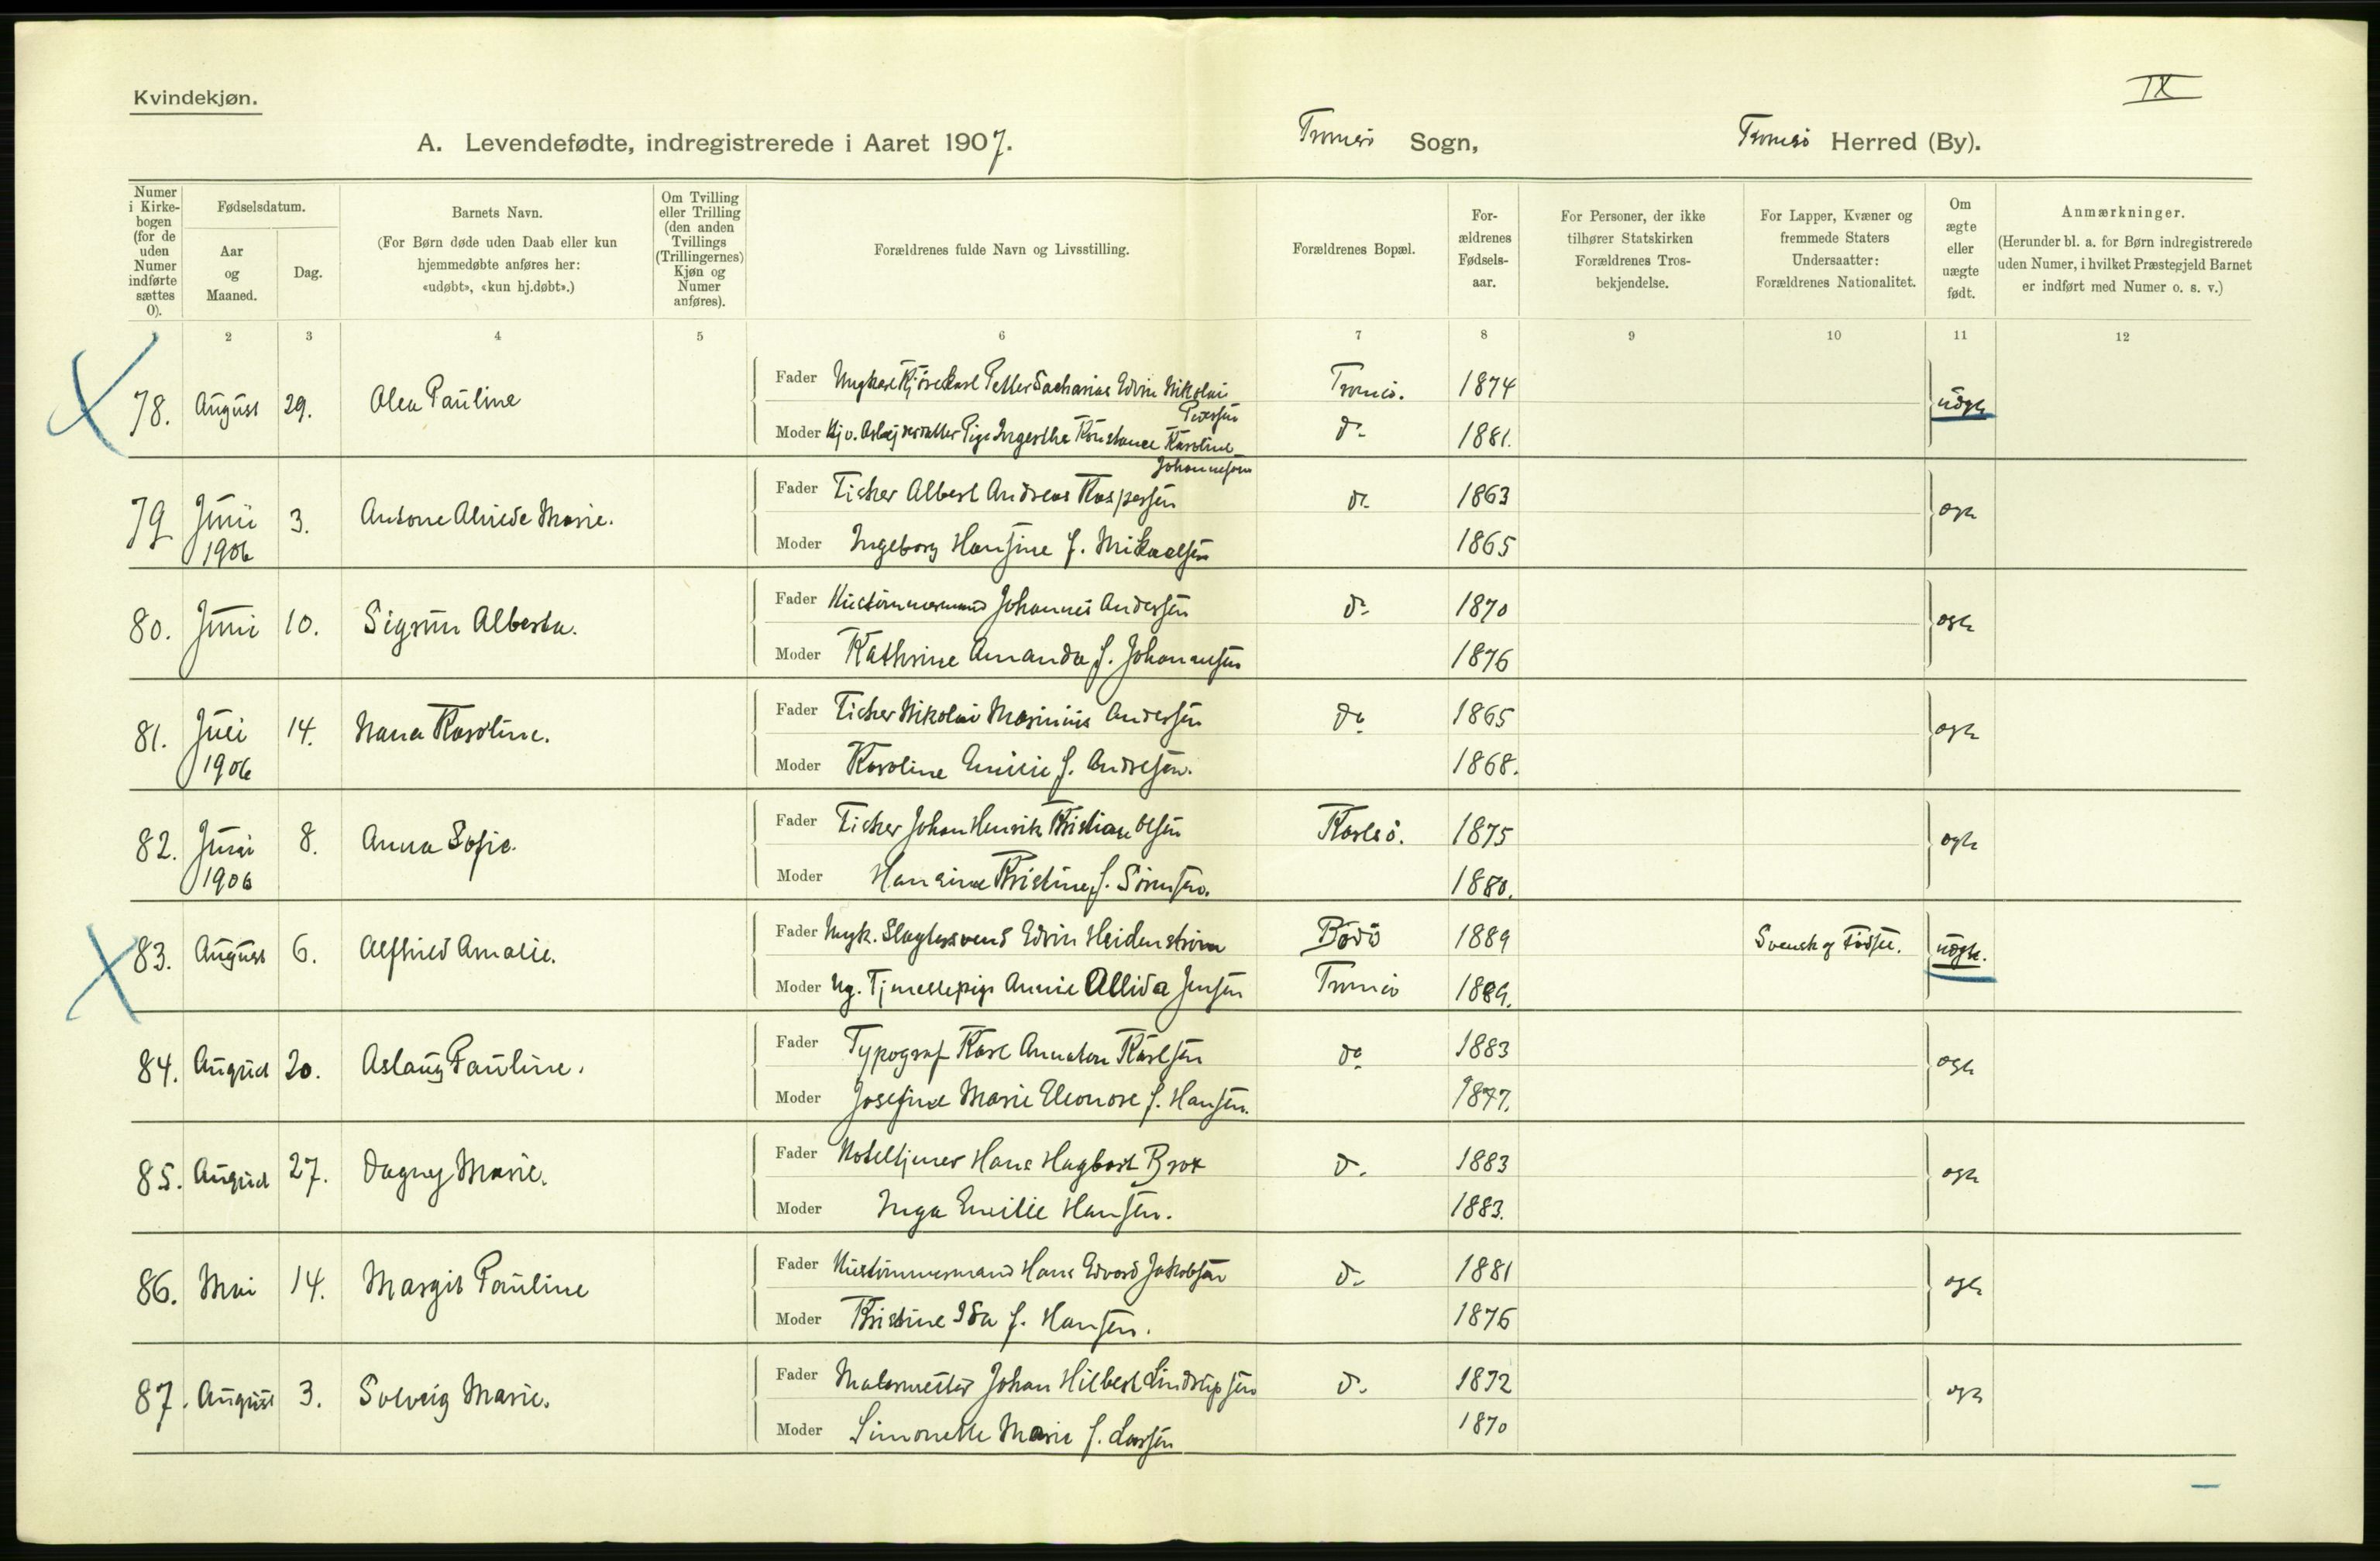 Kvindekjøn.
IX
A. Levendefødte, indregistrerede i Aaret 1907. Tromsö Sogn, Tromsö Herred (By).
Numer i Kirkebogen (for de uden Numer indførte sættes 0).
Fødselsdatum.
Aar og Maaned.
Dag.
Barnets Navn.
(For Børn døde uden Daab eller kun hjemmedøbte anføres her: «udøbt», «kun hj.døbt».)
Om Tvilling eller Trilling (den anden Tvillings (Trillingernes) Kjøn og Numer anføres).
Forældrenes fulde Navn og Livsstilling.
Forældrenes Bopæl.
Forældrenes Fødselsaar.
For Personer, der ikke tilhører Statskirken Forældrenes Trosbekjendelse.
For Lapper, Kvæner og fremmede Staters Undersaatter: Forældrenes Nationalitet.
Om ægte eller uægte født.
Anmærkninger.
(Herunder bl. a. for Børn indregistrerede uden Numer, i hvilket Præstegjeld Barnet er indført med Numer o. s. v.)
2 3 4 5 6 7 8 9 10 11 12
78. August 29. Olea Pauline
Fader Ungkarl Karl Petter Sacharias Edvin Nikolai Tromsö. 1874 uægte
Moder Pige Ingertha Konstance Karoline Johannesen do 1881.
79 Juni 1906 3. Antone Alvilde Marie.
Fader Fisker Albert Andreas Kaspersen do 1863 egte
Moder Ingeborg Hansine f. Mikaelsen 1865
80. Juni 10. Sigrun Alberta.
Fader Hustömmermand Johannes Andersen do 1870 egte
Moder Kathrine Amanda f. Johannesen 1876
81. Juli 1906 14. Nana Karoline.
Fader Fisker Nikolai Marinius Andersen do 1865 egte
Moder Karoline Emilie f. Andresen. 1868.
82. Juni 1906 8. Anna Sofie.
Fader Fisker Johan Henrik Kristian Olsen Karlsö. 1875 egte
Moder Hansine Kristine f. Sörensen. 1880.
83. August 6. Alfhild Amalie.
Fader Ungk. Slagtersvend Edvin Heidenström Bodö 1889 Svensk födsel. uægte.
Moder Ug. Tjenestepige Annie Allida Jensen Tromsö 1889.
84. August 20. Aslaug Pauline.
Fader Typograf Karl Annaton Karlsen do 1883 egte
Moder Josefine Marie Eleonore f. Hansen. 1877.
85. August 27. Dagny Marie.
Fader Hoteltjener Hans Hagbart Brox do. 1883 egte
Moder Inga Emilie Hansen. 1883.
86. Mai 14. Margit Pauline
Fader Hustömmermand Hans Edvard Jakobsen do 1881 egte
Moder Kristine Ida f. Hansen. 1876
87. August 3. Solveig Marie.
Fader Malermester Johan Hilbert Lindrupsen do 1872 egte
Moder Simonette Marie f. Larsen 1870